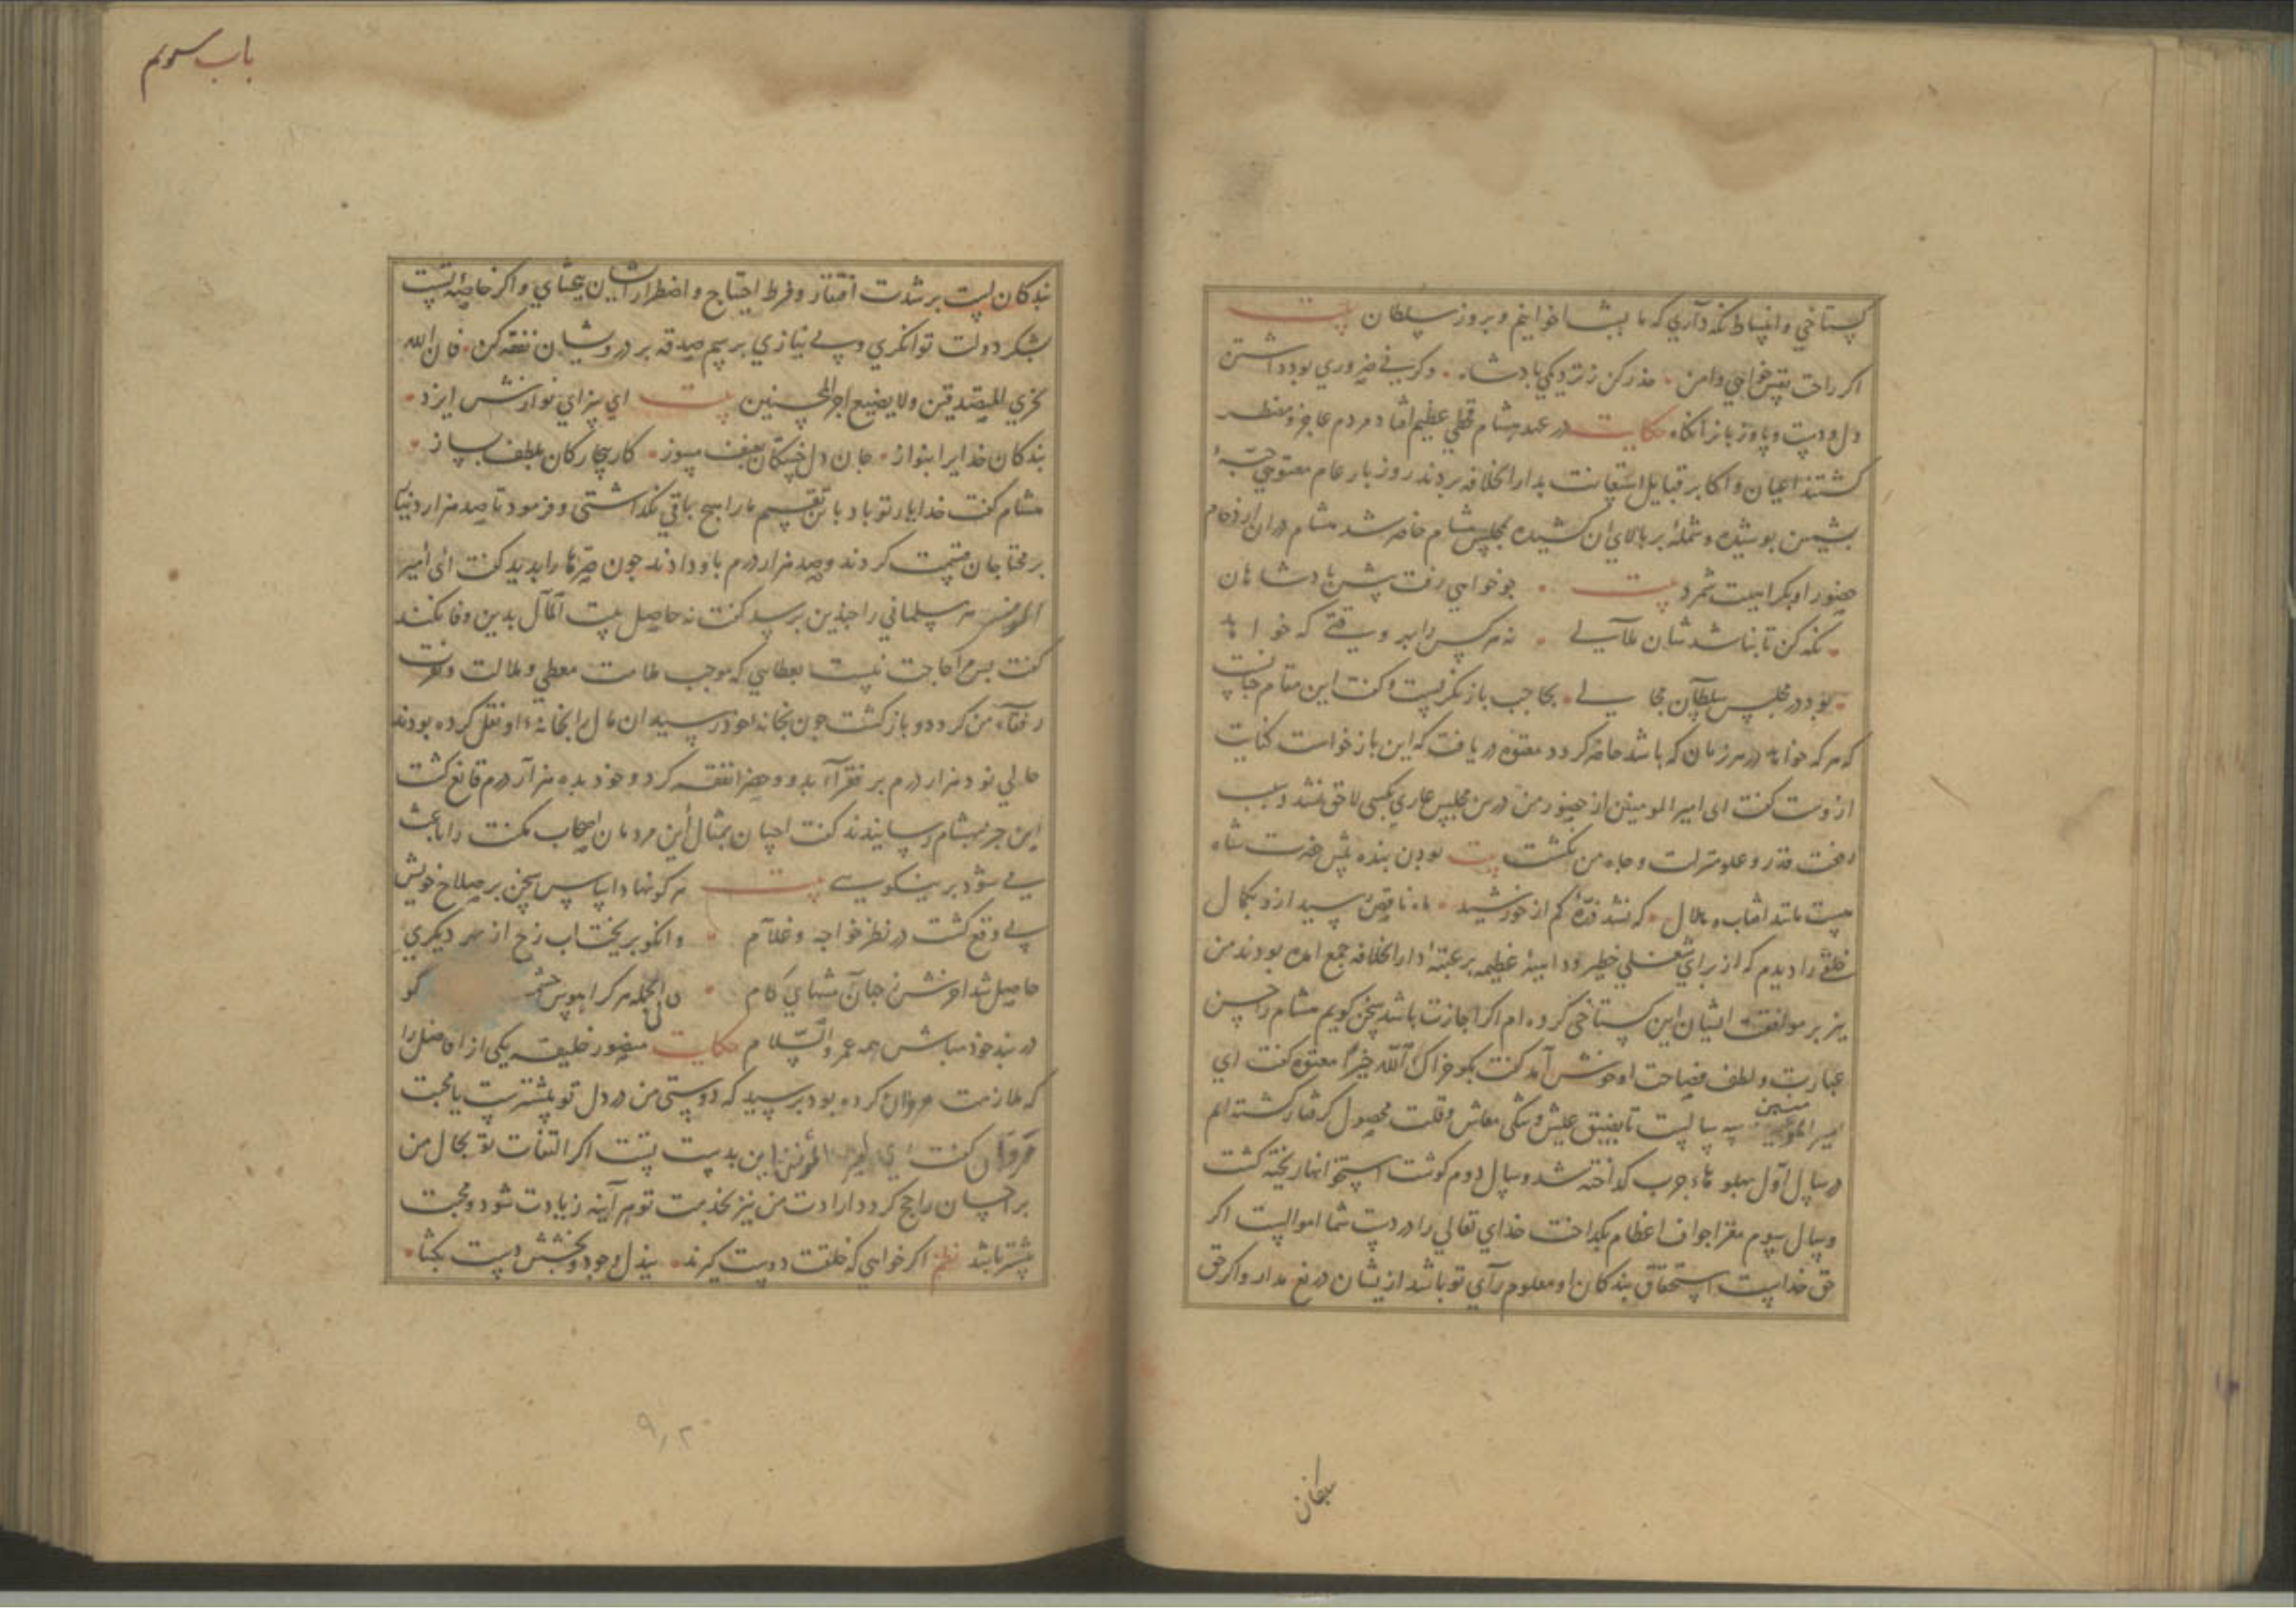 کستاخی و انبساط نکه داری که ما بشما خوانیم و بروز سلطان بیت
اکر راحت نفس خواهی و امن · حذر کن ز نزدیکی بادشاه · وکر نی ضروری بود داشتن
دل و دست و پا و زبانرا نکاه حکایت در عهد هشام قحطی عظیم افتاد مردم عاجز و مضطر
کشتند اعیان و اکابر قبایل استعانت بدار الخلافه بردند روز بار عام معتوهی جبهٔ
بشمین بوشیده و شملهٔ بر بالای ان کشیده بمجلس هشام حاضر شد هشام دران ازدحام
حضور او بکراهیت شمرد بیت · جو خواهی رفت پیش بادشاهان
· نکه کن تا نباشد شان ملالی · نه هر کس را بهر وقتی که خواهد
· بود در مجلس سلطان مجالی · بحاجب باز نکریست و کفت این مقام جنانست
که هر که خواهد در هر زمان که باشد حاضر کردد معتوه دریافت که این باز خواست کنایت
ازوست کفت ای امیر المومنین از حضور من درین مجلس عاری بکسی لاحق نشد و سبب
رفعت قدر و علو منزلت و جاه من کشت بیت بودن بنده پیش خدمت شاه
هست مانند افتاب و هلال · که نشد ذرهٔ کم از خورشید · ماه ناقص رسید ازو بکمال
خلقی را دیدم که از برای شغلی خطیر و داهیهٔ عظیمه بر عتبهٔ دار الخلافه جمع امده بودند من
نیز بر موافقت ایشان این کستاخی کرده ام اکر اجازت باشد سخن کویم هشام را حسن
عبارت و لطف فصاحت او خوش آمد کفت بکو جزاک الله خیرا معتوه کفت ای
امیر المومنین سه سالست تا بضیق عیش و تنکی معاش و قلت محصول کرفتار کشته ایم
در سال اول پهلوهاء جرب کداخته شد و سال دوم کوشت استخوانها ریخته کشت
و سال سیوم مغز اجواف اعظام بکداخت خدای تعالی را در دست شما اموالیست اکر
حق خداست استحقاق بندکان او معلوم رآی تو باشد ازیشان دریغ مدار و اکر حق
بندکان
باب سویم
بندکان است بر شدت افتقار و فرط احتیاج و اضطرار ایشان ببخشای و اکر خاصهٔ تست
بشکر دولت توانکری و بی نیازی برسم صدقه بر درویشان نفقه کن · فان الله
یجزی المتصدقین و لا یضیع اجر المحسنین بیت ای سزای نوازش ایزد ·
بندکان خدایرا بنواز · جان دل خستکان بعنف مسوز · کار بیچارکان بلطف بساز ·
هشام کفت خدا یار تو باد باین تقسیم ما را هیچ باقی نکذاشتی و فرمود تا صد هزار دینار
بر محتاجان قسمت کردند و صد هزار درم باو دادند جون صرّها را بدید کفت ای امیر
المومنین هر مسلمانی را جندین برسید کفت نه حاصل بیت المال بدین وفا نکند
کفت بس مرا حاجت نیست بعطایی که موجب ملامت معطی و ملالت و نفرت
رفقآء من کردد و باز کشت جون بخانه خوذ رسید ان مال را بخانهٔ او نقل کرده بودند
حالی نود هزار درم بر فقرآء بدو و حضر نفقه کرد و خود بده هزار درم قانع کشت
این خبر بهشام رسانیدند کفت احسان بمثال این مردمان اصحاب مکنت را باعث
می شود بر نیکویی بیت هر کو نهاد اساس سخن بر صلاح خویش
بی وقع کشت در نظر خواجه و غلام · وانکو بریخت اب رخ از بهر دیکری
حاصل شد اخرش ز جهان منتهای کام · فی الجمله هر کرا هوس حشمـ کو
در بند خوذ مباش همه عمر و السلام حکایت منصور خلیفه یکی از افاضل را
که ملازمت مروان کرده بود برسید که دوستی من در دل تو بیشترست یا محبت
مروان کفت ای امیر المؤمنین این بدست تست اکر التفات تو بحال من
بر احسان راجح کردد ارادت من نیز بخدمت تو هر آینه زیادت شود و محبت
بیشتر باشد نظم اکر خواهی که خلقت دوست کیرند · ببذل و جود و بخشش دست بکشا ·